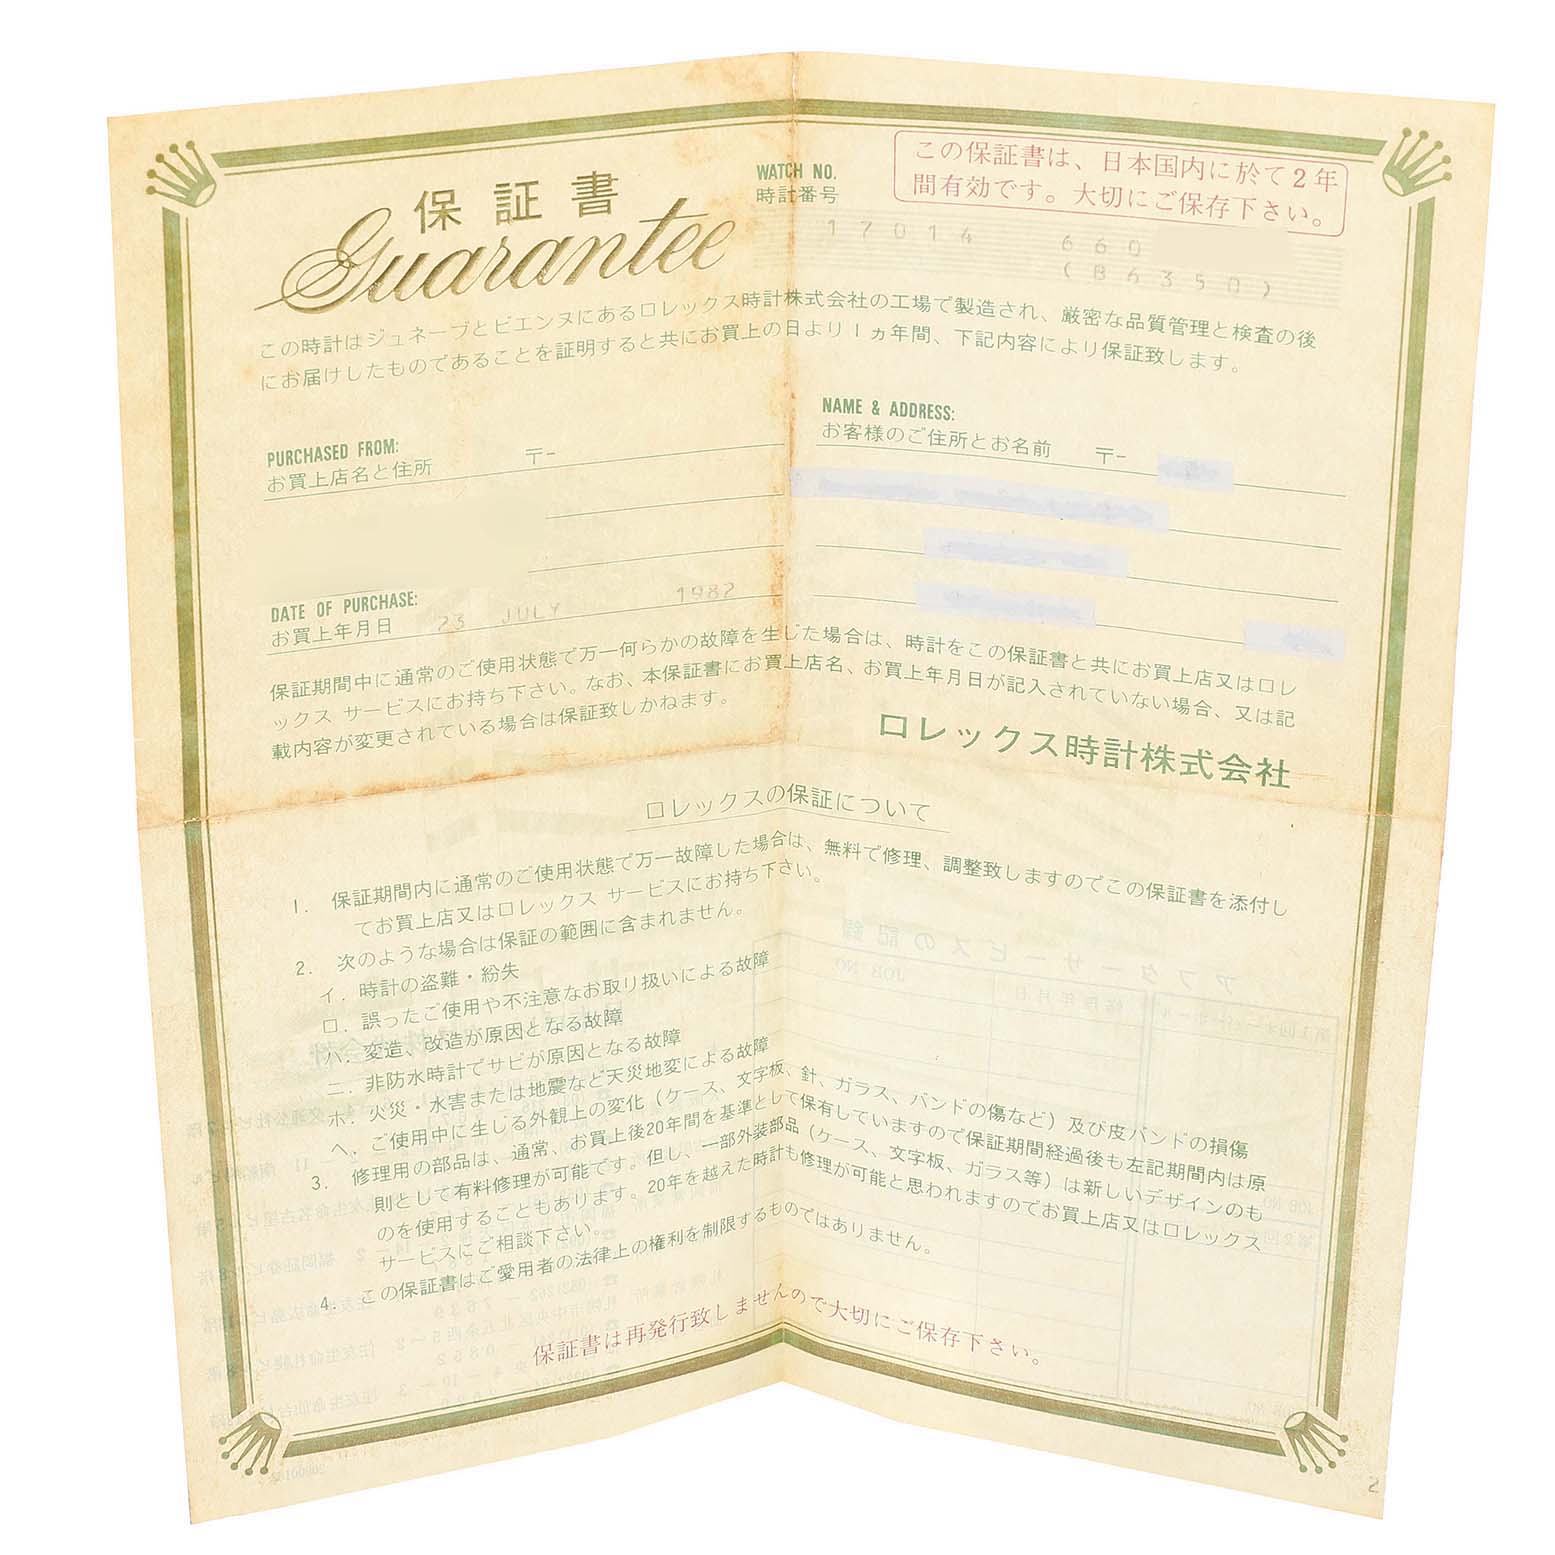 保証書
Guarantee
WATCH NO.
時計番号
この保証書は、日本国内に於て2年
間有効です。大切にご保存下さい。
17014 660
(B6350)
この時計はジュネーブとビエンヌにあるロレックス時計株式会社の工場で製造され、厳密な品質管理と検査の後
にお届けしたものであることを証明すると共にお買上の日より1ヵ年間、下記内容により保証致します。
PURCHASED FROM:
お買上店名と住所 〒-
NAME & ADDRESS:
お客様のご住所とお名前 〒-
DATE OF PURCHASE:
お買上年月日 23 JULY 1982
保証期間中に通常のご使用状態で万一何らかの故障を生じた場合は、時計をこの保証書と共にお買上店又はロレ
ックス サービスにお持ち下さい。なお、本保証書にお買上店名、お買上年月日が記入されていない場合、又は記
載内容が変更されている場合は保証致しかねます。
ロレックス時計株式会社
ロレックスの保証について
1. 保証期間内に通常のご使用状態で万一故障した場合は、無料で修理、調整致しますのでこの保証書を添付し
てお買上店又はロレックス サービスにお持ち下さい。
2. 次のような場合は保証の範囲に含まれません。
イ. 時計の盗難・紛失
ロ. 誤ったご使用や不注意なお取り扱いによる故障
ハ. 変造、改造が原因となる故障
ニ. 非防水時計でサビが原因となる故障
ホ. 火災・水害または地震など天災地変による故障
ヘ. ご使用中に生じる外観上の変化(ケース、文字板、針、ガラス、バンドの傷など)及び皮バンドの損傷
3. 修理用の部品は、通常、お買上後20年間を基準として保有していますので保証期間経過後も左記期間内は原
則として有料修理が可能です。但し、一部外装部品(ケース、文字板、ガラス等)は新しいデザインのも
のを使用することもあります。20年を越えた時計も修理が可能と思われますのでお買上店又はロレックス
サービスにご相談下さい。
4. この保証書はご愛用者の法律上の権利を制限するものではありません。
保証書は再発行致しませんので大切にご保存下さい。
2